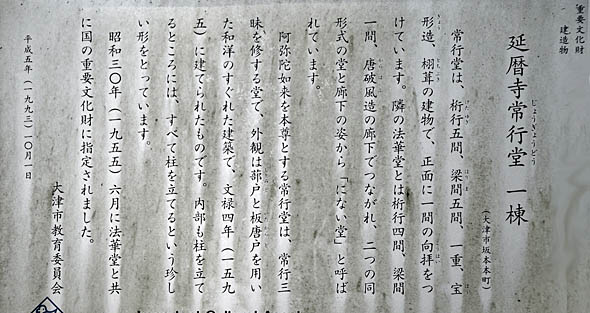 重要文化財
建造物
延暦寺常行堂 一棟
じょうぎょうどう
（大津市坂本本町）
常行堂は、桁行五間、梁間五間、一重、宝
形造、栩葺の建物で、正面に一間の向拝をつ
けています。隣の法華堂とは桁行四間、梁間
一間、唐破風造の廊下でつながれ、二つの同
形式の堂と廊下の姿から「にない堂」と呼ば
れています。
阿弥陀如来を本尊とする常行堂は、常行三
昧を修する堂で、外観は蔀戸と板唐戸を用い
た和洋のすぐれた建築で、文禄四年（一五九
五）に建てられたものです。内部も柱を立て
るところには、すべて柱を立てるという珍し
い形をとっています。
昭和三〇年（一九五五）六月に法華堂と共
に国の重要文化財に指定されました。
大津市教育委員会
平成五年（一九九三）一〇月一日